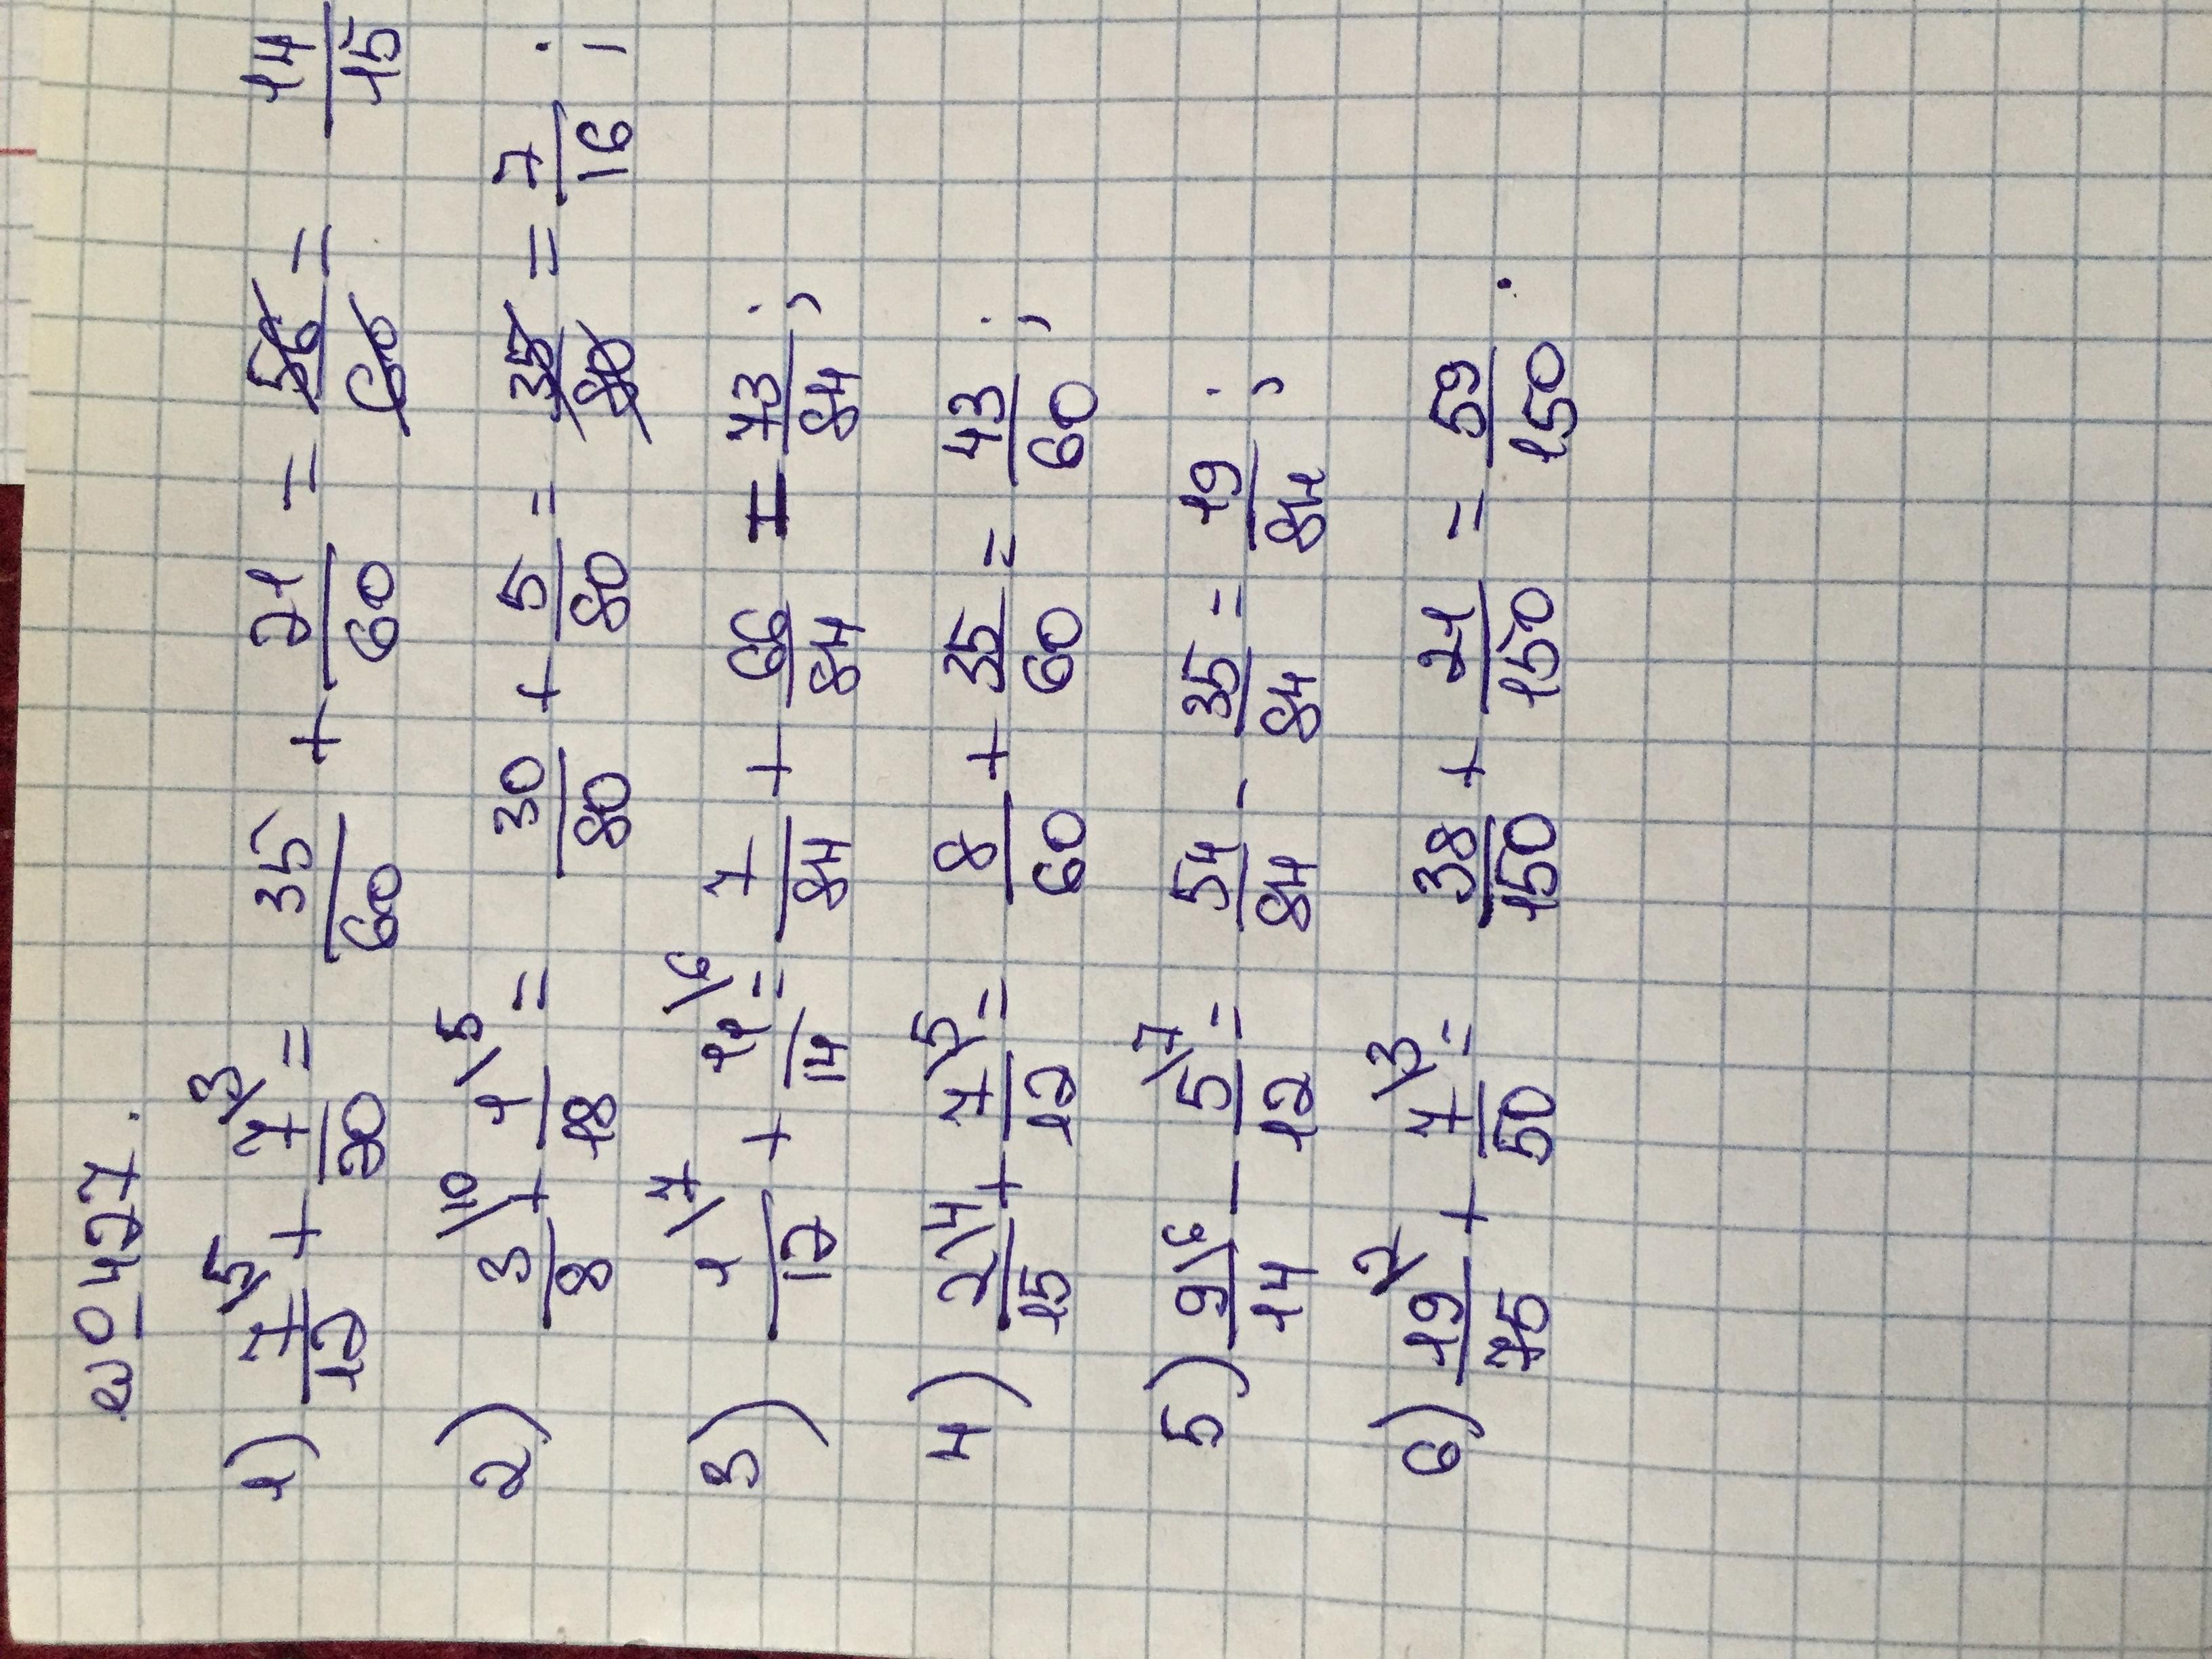 № 427.
1) 7/12 \5 + 7/20 \3 = 35/60 + 21/60 = 56/60 = 14/15
2) 3/8 \10 + 1/18 \5 = 30/80 + 5/80 = 35/80 = 7/16 ;
3) 1/12 \7 + 11/14 \6 = 7/84 + 66/84 = 73/84 ;
4) 2/15 \4 + 7/12 \5 = 8/60 + 35/60 = 43/60 ;
5) 9/14 \6 - 5/12 \7 = 54/84 - 35/84 = 19/84 ;
6) 19/75 \2 + 7/50 \3 = 38/150 + 21/150 = 59/150 .